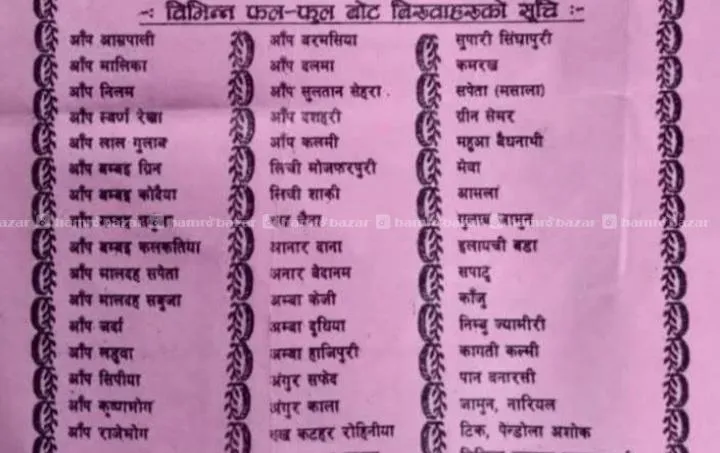 -: विभिन्न फल-फूल बोट बिरुवाहरुको सूचि :-
आँप आम्रपाली
आँप मालिका
आँप निलम
आँप स्वर्ण रेखा
आँप लाल गुलाब
आँप बम्बइ ग्रिन
आँप बम्बइ कोदैया
आँप बम्बइ कलकतिया
आँप मालदह सपेता
आँप मालदह सबुजा
आँप जर्दा
आँप लडुवा
आँप सिपीया
आँप कृष्णभोग
आँप राजेभोग
आँप बरमसिया
आँप दलमा
आँप सुलतान सेहरा
आँप दशहरी
आँप कलमी
लिची मोजफरपुरी
लिची शाकी
आनार दाना
अनार बेदानम
अम्बा केजी
अम्बा दुधिया
अम्बा हाजिपुरी
अंगुर सफेद
अंगुर काला
रुख कटहर रोहिनीया
सुपारी सिंघापुरी
कमरख
सपेता (मसाला)
ग्रीन सेमर
महुआ बैधनाथी
मेवा
आमला
गुलाब जामुन
इलायची बडा
सपाटु
काँजु
निम्बु ज्यामीरी
कागती कल्मी
पान बनारसी
जामुन, नारियल
टिक, पेन्डोला अशोक
hamrobazar hamrobazar hamrobazar hamrobazar